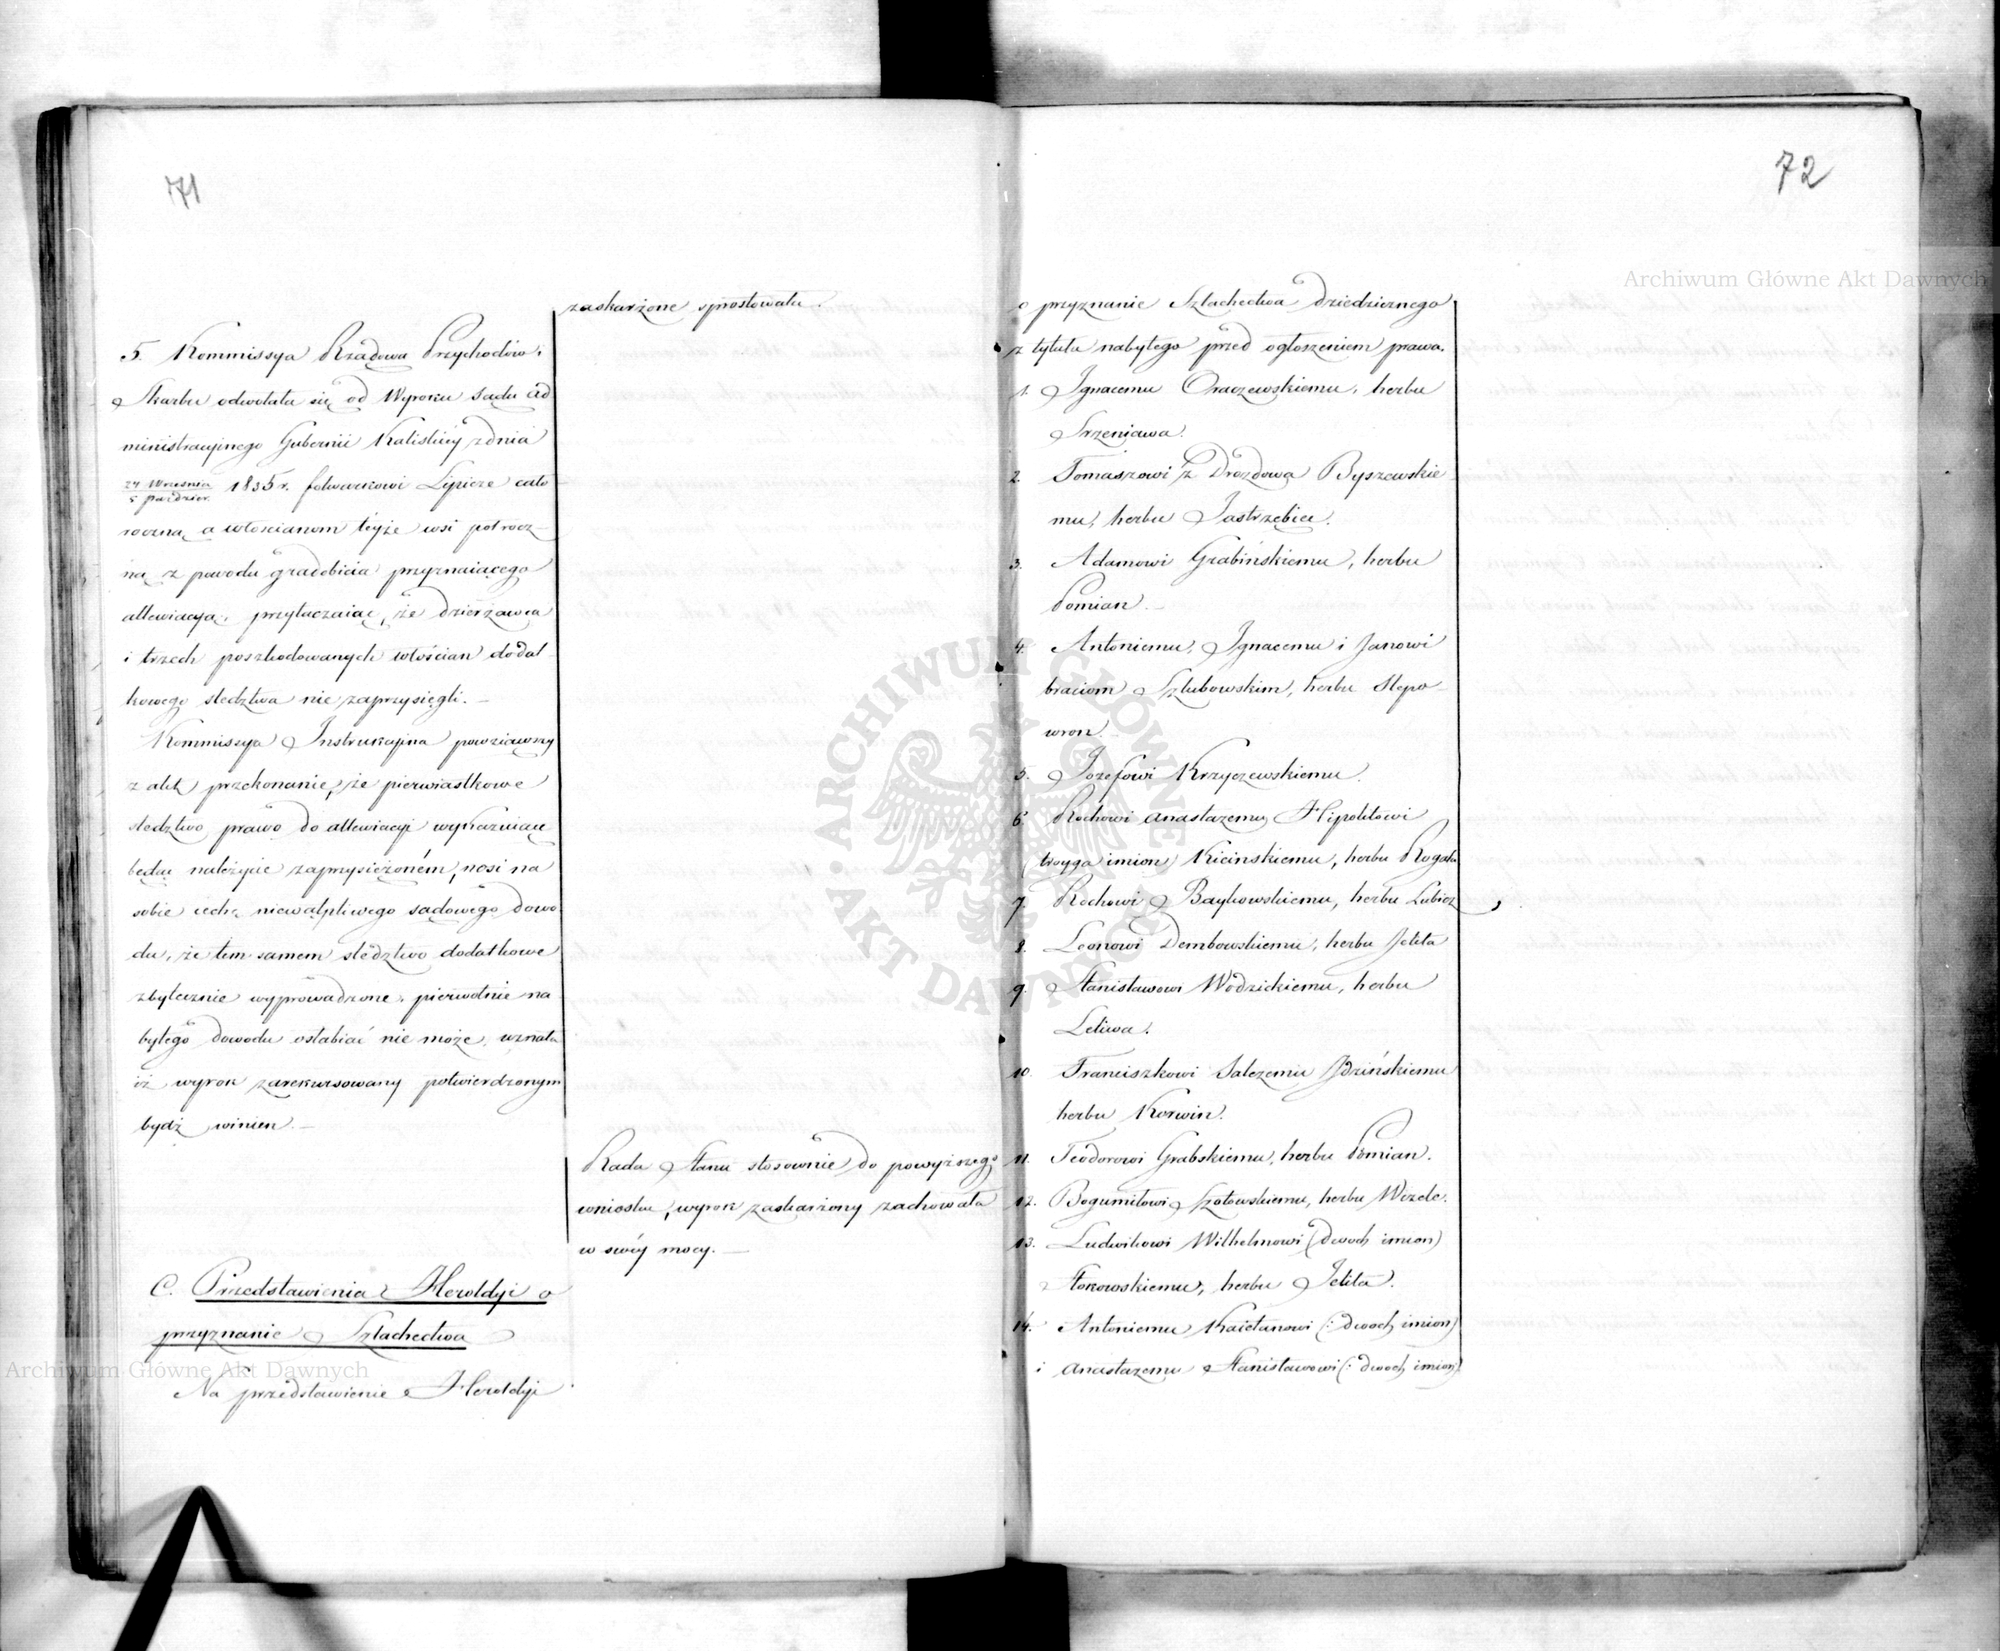 71
zaskarżone sprostowała.
5. Kommissya Rządowa Przychodów i
Skarbu odwołała się od Wyroku Sądu Ad
ministracyjnego Gubernii Kaliskiéy z dnia
24 Września
5 Paździer. 1835 r. folwarkowi Lipicze cało
roczną a włościanom téyże wsi półrocz-
ną z powodu gradobicia przyznaiącego
allewiacyą, przytaczaiąc, że dzierżawca
i trzech poszkodowanych włościan dodat-
kowego śledztwa nie zaprzysięgli. —
Kommissya Instrukcyina powziąwszy
z akt przekonanie, że pierwiastkowe
śledztwo prawo do allewiacyi wykazuiące
będąc należycie zaprzysiężoném, nosi na
sobie cechę niewątpliwego sądowego dowo
du, że tem samem śledztwo dodatkowe
zbytecznie wyprowadzone, pierwotnie na
bytego dowodu osłabiać nie może, uznała
iż wyrok zarekursowany potwierdzonym
bydź winien. —
Rada Stanu stosownie do powyższego
wniosku, wyrok zaskarżony zachowała
w swéy mocy. —
C. Przedstawienia Heroldyi o
przyznanie Szlachectwa
Na przedstawienie Heroldyi
72
o przyznanie Szlachectwa dziedzicznego
z tytułu nabytego przed ogłoszeniem prawa.
1. Ignacemu Oraczewskiemu, herbu
Srzeniawa.
2. Tomaszowi z Drozdowa Byszewskie
mu, herbu Jastrzębiec.
3. Adamowi Grabińskiemu, herbu
Pomian. —
4. Antoniemu, Ignacemu i Janowi
braciom Szlubowskim, herbu Slepo-
wron. —
5. Józefowi Krzyczewskiemu.
6. Rochowi Anastazemu Hipolitowi
(troyga imion) Kicińskiemu, herbu Rogala
7. Rochowi Baykowskiemu, herbu Lubicz
8. Leonowi Dembowskiemu, herbu Jelita
9. Stanisławowi Wodzickiemu, herbu
Leliwa.
10. Franciszkowi Salezemu Jdzińskiemu
herbu Korwin.
11. Teodorowi Grabskiemu, herbu Pomian.
12. Bogumiłowi Szołowskiemu, herbu Wczele.
13. Ludwikowi Wilhelmowi (dwoch imion)
Stokowskiemu, herbu Jelita.
14. Antoniemu Kaietanowi (: dwoch imion)
i Anastazemu Stanisławowi (: dwoch imion)
Archiwum Główne Akt Dawnych
Archiwum Główne Akt Dawnych
ARCHIWUM GŁÓWNE AKT DAWNYCH